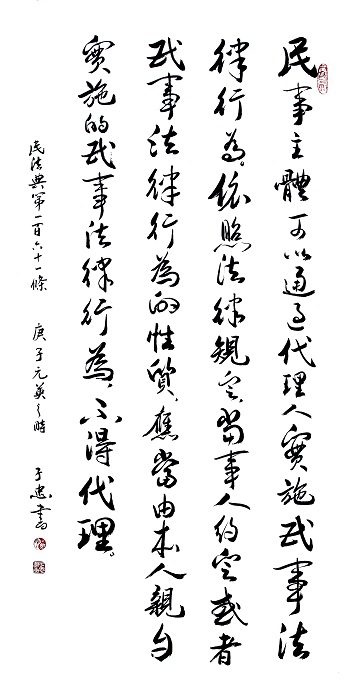 民事主體可以通過代理人實施民事法
律行為。依照法律規定、當事人約定或者
民事法律行為的性質，應當由本人親自
實施的民事法律行為，不得代理。
民法典第一百六十一條　庚子元英之時　子忠書